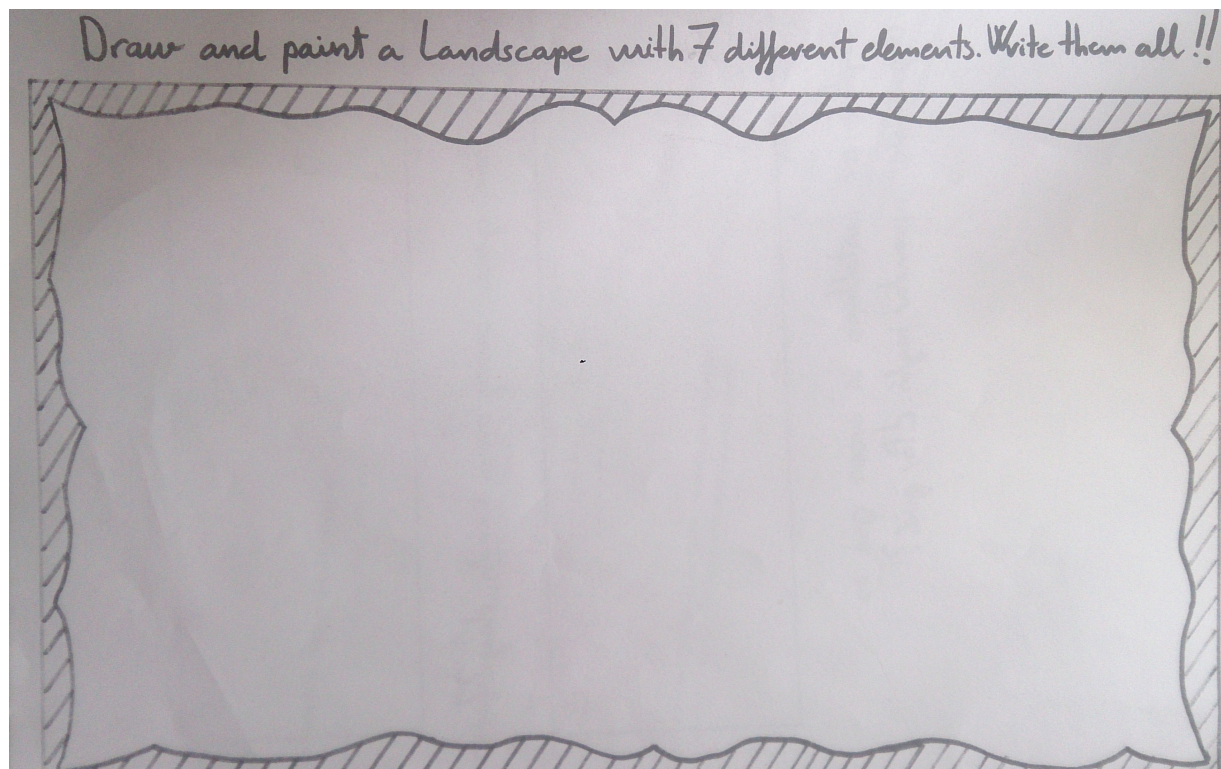 Draw and paint a Landscape with 7 different elements. Write them all!!